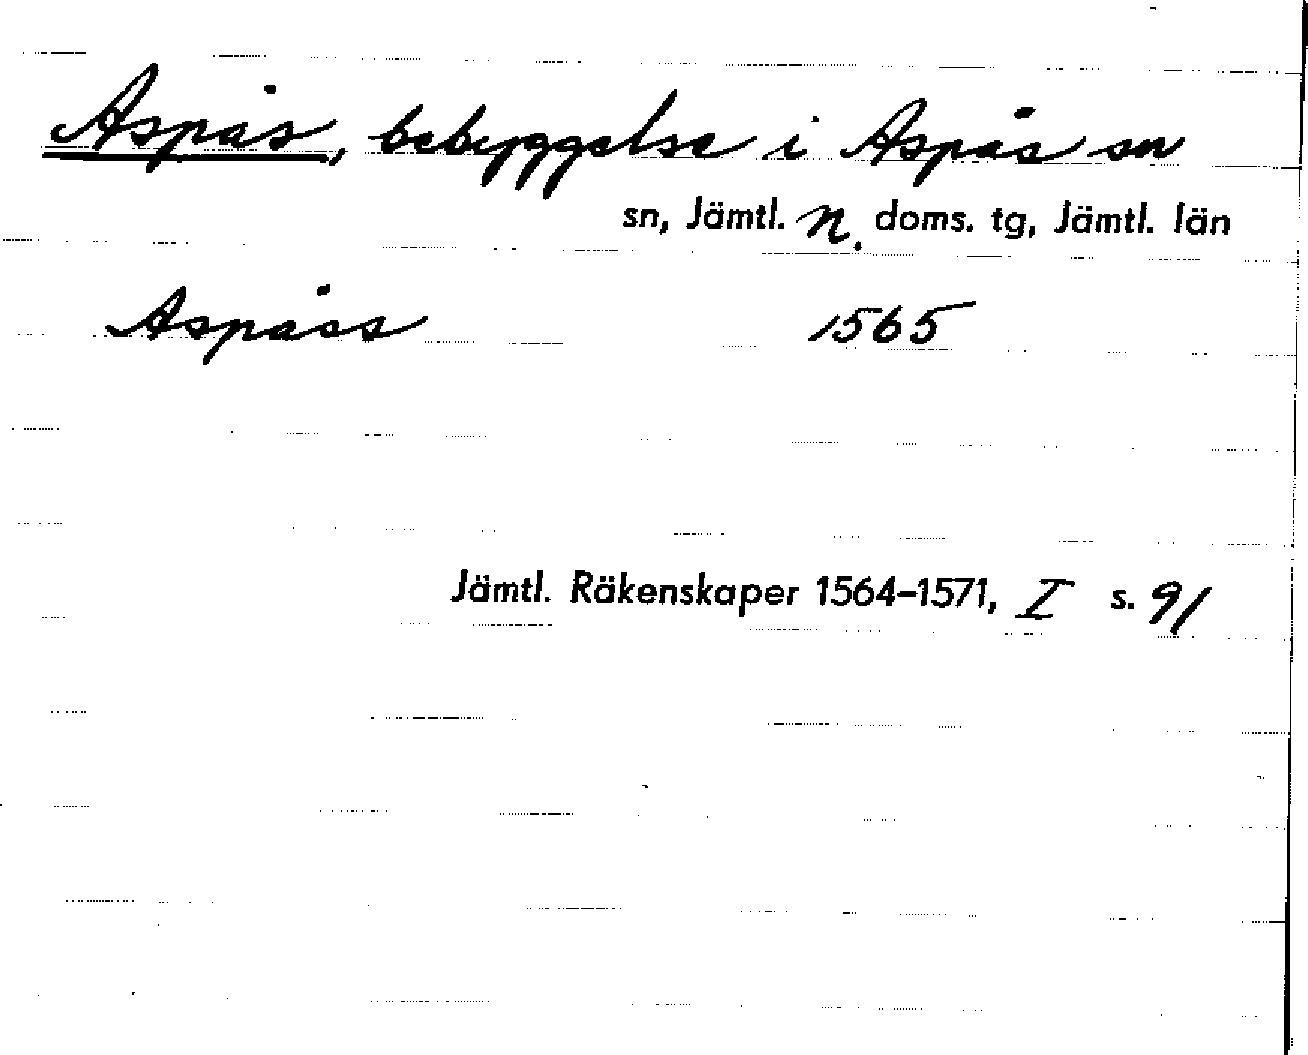 Aspås, bebyggelse i Aspås sn
sn, Jämtl. n. doms. tg, Jämtl. län
Aspåss 1565
Jämtl. Räkenskaper 1564-1571, I s. 91